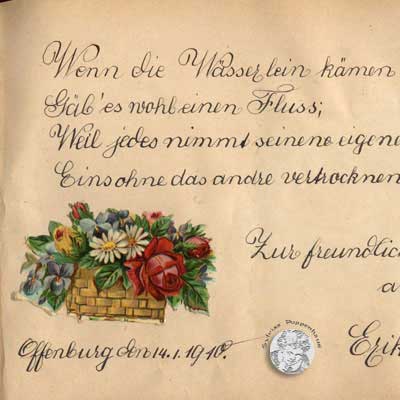 Wenn die Wässerlein kämen
Gäb'es wohl einen Fluss;
Weil jedes nimmt seinene eigene
Eins ohne das andre vertrocknen
Zur freundlich
a
Offenburg den 14.1.1910.
Erik
Sabrise Puppenhaus